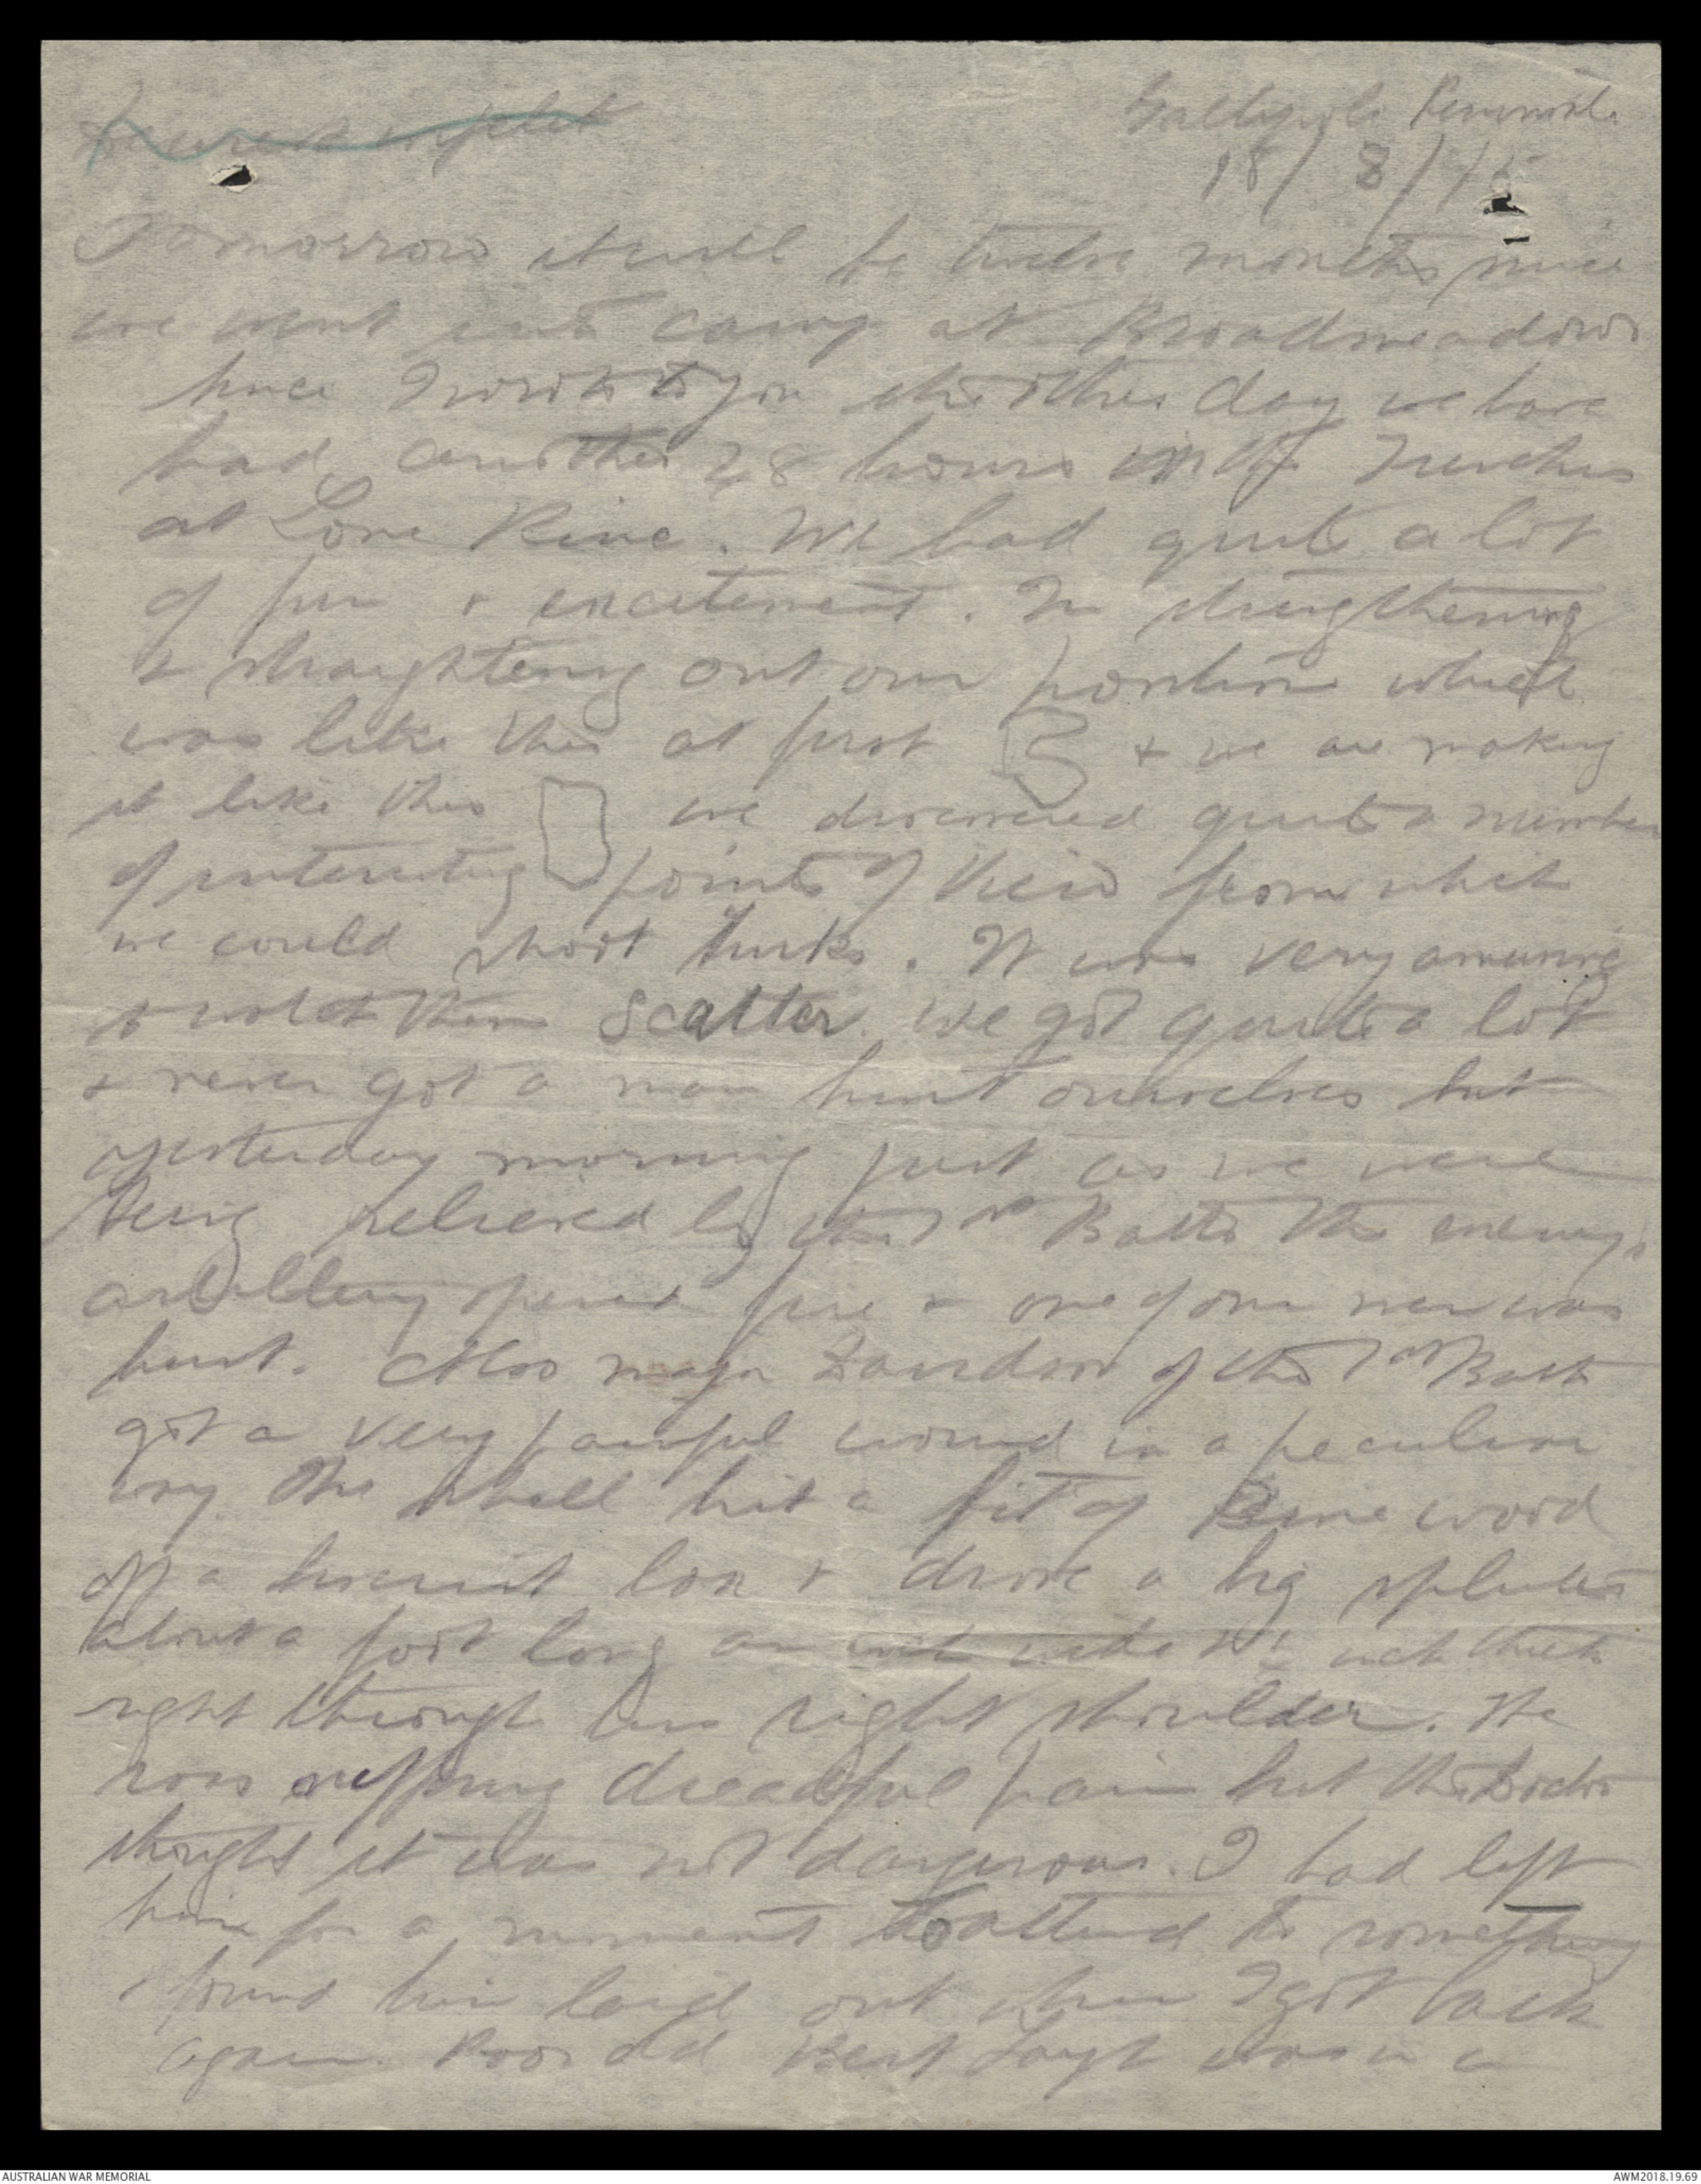 Gallipoli Peninsula
18/8/15
Tomorrow it will be twelve months since
we went into camp at Broadmeadows
Since I wrote to you the other day we have
had another 48 hours in the Trenches
at Lone Pine. We had quite a lot
of fun & excitement. In strengthening
& straightening out our position which
was like this at first & we are making
it like this we discovered quite a number
of interesting points of view from which
we could shoot Turks. It was very amusing
to watch them scatter. We got quite a lot
& never got a man hurt ourselves but
yesterday morning just as we were
being relieved by the 7th Battn the enemy's
artillery opened fire & one of our men was
hurt. Also Major of the 7th Battn
got a very painful wound in a peculiar
way. The shell hit a bit of Pine wood
off a biscuit box & drove a big splinter
about a foot long an inch wide & ½ inch thick
right through his right shoulder. He
was suffering dreadful pain but the Doctor
thought it was not dangerous. I had left
him for a moment to attend to something
& found him laid out when I got back
again. Poor old Bert Layh was in a
AUSTRALIAN WAR MEMORIAL
AWM2018.19.69